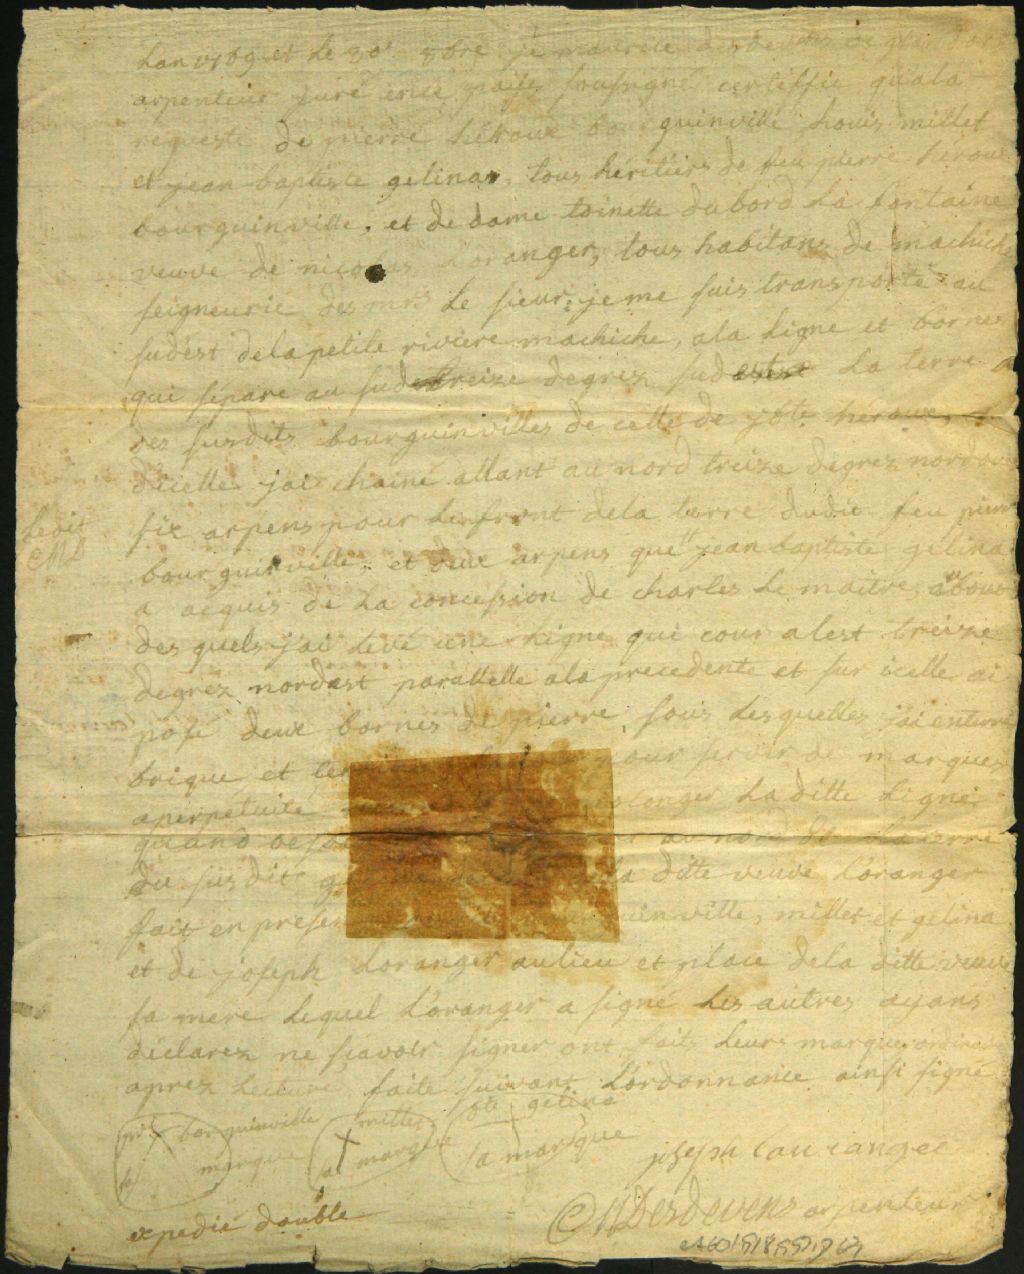 Lan 1769 et le 30e 8bre je maurice desdevens de
arpenteur juré ence païs sousigné certiffie qu'ala
requeste de pierre héroux bourguinville, Louis millet
et jean baptiste gelinas, tous héritiers de feu pierre heroux
bourguinville, et de dame toinette dubord La fontaine
veuve de nicolas Loranger, tous habitans de machiche
seigneurie des mrs Le sieur; je me suis transporté au
sudest dela petite riviere machiche, ala Ligne et bornes
qui sépare au sud treize degrez sudest La terre
des susdits bourguinvilles de celle de jbte heroux, et
dicelle jai chainé allant au nord treize degrez nordouest
six arpens pour Le front dela terre dudit feu pierre
bourguinville. et deux arpens que jean baptiste gelina
a acquis de La concession de charles Le maitre, about
des quels j'ai tiré une Ligne qui cour alest treize
degrez nordest parallelle ala precedente et sur icelle ai
posé deux bornes de pierre, sous Lesquelles j'ai enterré
brique et pour servir de marques
aperpetuité Laditte Ligne
quand au nord de La terre
du susdit la ditte veuve Loranger
fait en presence bourguinville, millet et gelina
et de joseph Loranger aulieu et place dela ditte veuve
sa mere Lequel Loranger a signé Les autres ayans
déclarez ne scavoir signer ont faits Leurs marques ordinaires
aprez Lecture faite suivant L'ordonnance ainsi signé
pre bourguinville millet jbte gelina
sa marque sa marque sa marque joseph Laurangee
MDesdevens arpenteur
expedié double